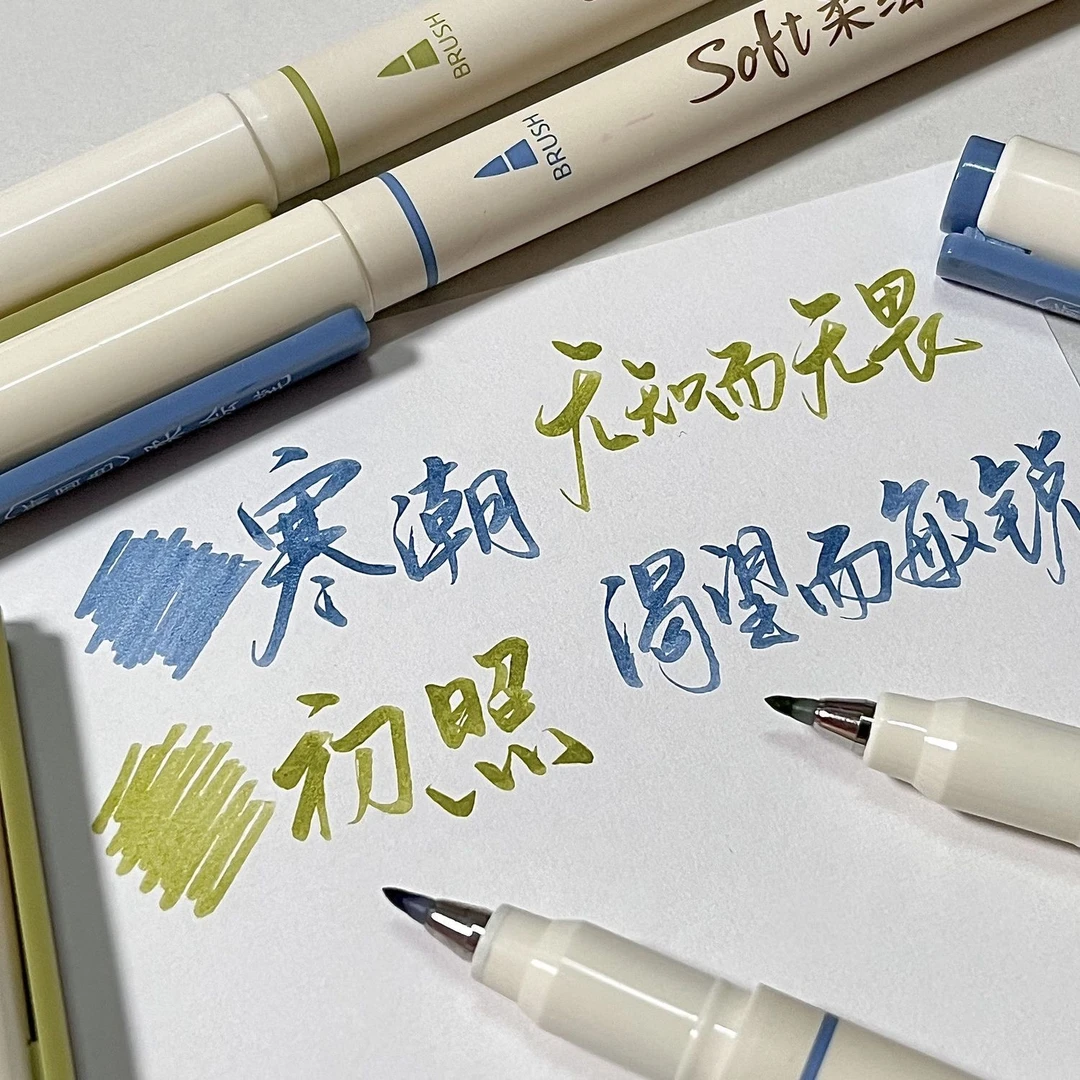 BRUSH
BRUSH
Soft 柔绘
无知而无畏
寒潮
渴望而敏锐
初照